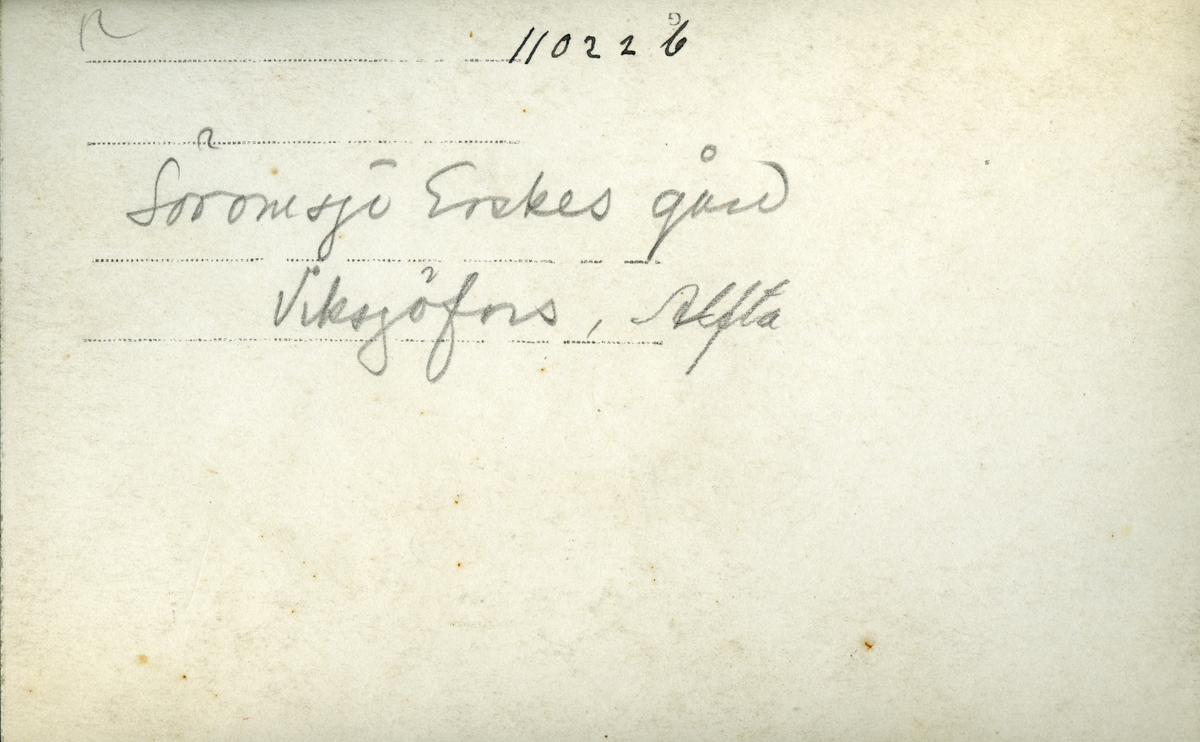 R
11022 6 G
Söromsjö Erskes gård
Viksjöfors, Alfta